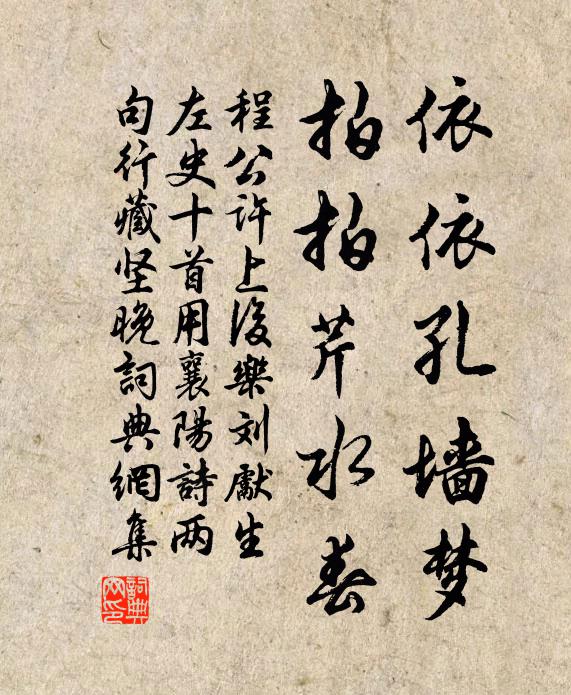 依依孔墙梦
拍拍芹水春
程公许上後樂刘獻生
左史十首用襄陽詩两
句行藏坚晚詞典網集
詞典网印